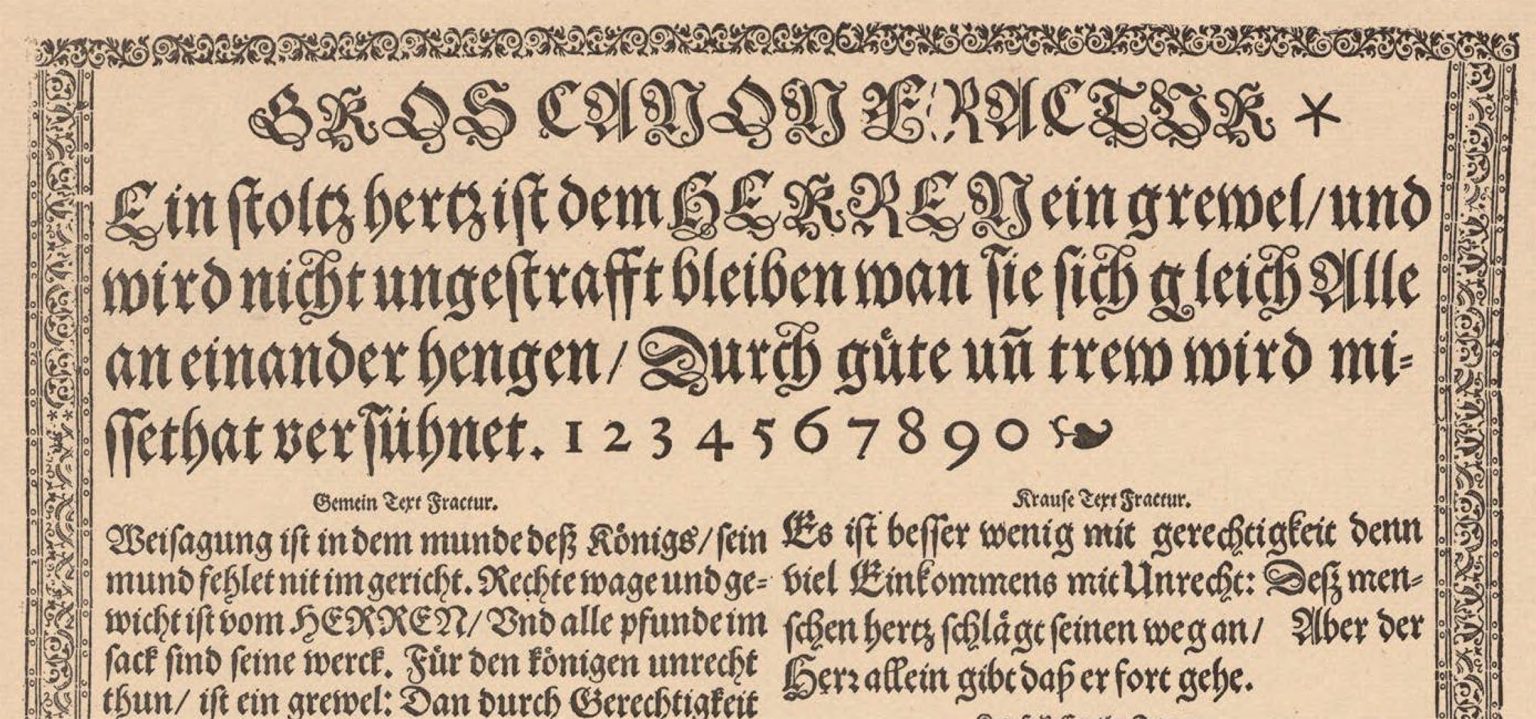 GROS CANON FRACTUR *
Ein stoltz hertz ist dem HERREN ein grewel/und
wird nicht ungestrafft bleiben wan sie sich gleich Alle
an einander hengen/ Durch guͤte uñ trew wird mi-
ssethat versuͤhnet. 1 2 3 4 5 6 7 8 9 0 ❧
Gemein Text Fractur.
Weisagung ist in dem munde deß Koͤnigs/ sein
mund fehlet nit im gericht. Rechte wage und ge-
wicht ist vom HERREN/ Vnd alle pfunde im
sack sind seine werck. Fuͤr den koͤnigen unrecht
thun/ ist ein grewel: Dan durch Gerechtigkeit
Krause Text Fractur.
Es ist besser wenig mit gerechtigkeit denn
viel Einkommens mit Unrecht: Deß men-
schen hertz schlaͤgt seinen weg an/ Aber der
Herr allein gibt daß er fort gehe.